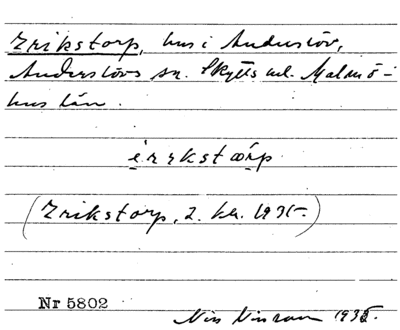 Erikstorp, hus i Anderslöv,
Anderslövs sn. Skytts hd. Malmö-
hus län.
érɩkstærp
(Erikstorp, 2. kl. 1931.)
Nr 5802
Nils 1935.